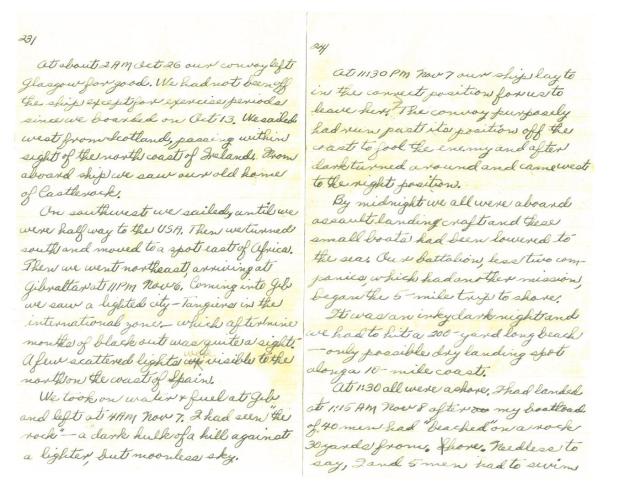 23/
At about 2 AM Oct 26 our convoy left
Glasgow for good. We had not been off
the ship except for exercise periods
since we boarded on Oct 13. We sailed
west from Scotland, passing within
sight of the north coast of Ireland. From
aboard ship we saw our old home
of Castlerock.
On southwest we sailed, until we
were half way to the USA. Then we turned
south and moved to a spot east of Africa.
Then we went northeast, arriving at
Gibraltar at 11 PM Nov 6. Coming into Gib
we saw a lighted city - Tangiers in the
international zone - which after nine
months of blackout was quite a sight.
A few scattered lights were visible to the
north on the coast of Spain.
We took on water & fuel at Gib
and left at 4 AM Nov 7. I had seen "the
rock" - a dark hulk of a hill against
a lighter, but moonless sky.
24/
At 11:30 PM Nov 7 our ship lay to
in the correct position for us to
leave her. The convoy purposely
had run past its position off the
coast to fool the enemy and after
dark turned around and came west
to the right position.
By midnight we all were aboard
assault landing craft and these
small boats had been lowered to
the sea. Our battalion, less two com-
panies which had another mission,
began the 5-mile trip to shore.
It was an inky dark night and
we had to hit a 200-yard long beach
- only possible dry landing spot
along a 10-mile coast.
At 1:30 all were ashore. I had landed
at 1:15 AM Nov 8 after my boatload
of 40 men had "beached" on a rock
30 yards from shore. Needless to
say, I and 5 men had to swim